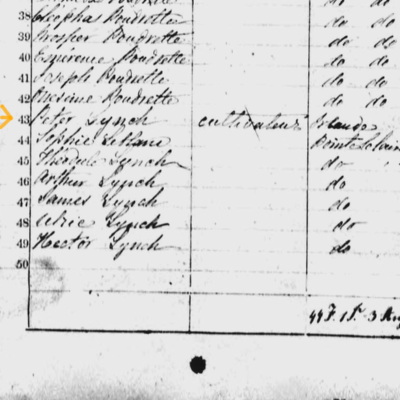 38 Cleophas Poudrette do do
39 Prosper Poudrette do do
40 Espérence Poudrette do do
41 Joseph Poudrette do do
42 Poudrette do do
43 Peter Lynch cultivateur Irlande
44 Sophie Leblanc Pointe Claire
45 Théodule Lynch do
46 Arthur Lynch do
47 James Lynch do
48 Ulric Lynch do
49 Hector Lynch do
50